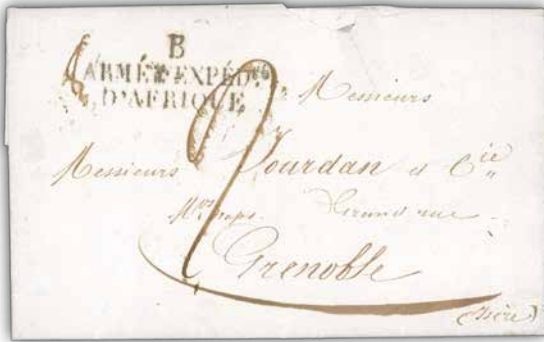 B
ARMÉE EXPÉD.
D'AFRIQUE
Messieurs
Messieurs Jourdan et Cie
Grand rue
Grenoble
(Isère)